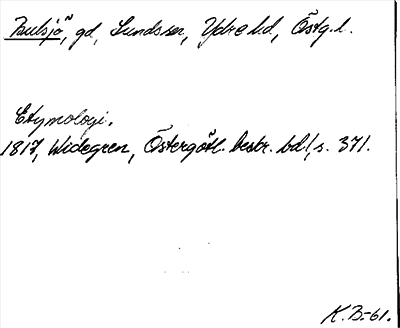 Bulsjö, gd, Sunds sn, Ydre hd, Östg. l.
Etymologi.
1817, Widegren, Östergötl. beskr. bd 1, s. 371.
K.B.-61.